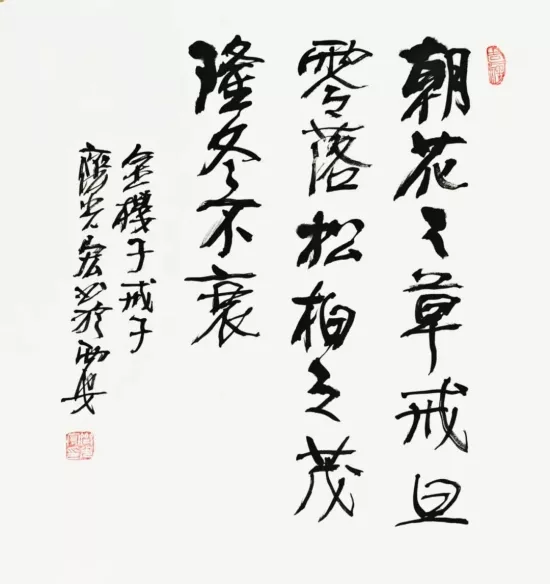 朝花之草戒旦
零落松柏之茂
隆冬不衰
金機子戒子
光